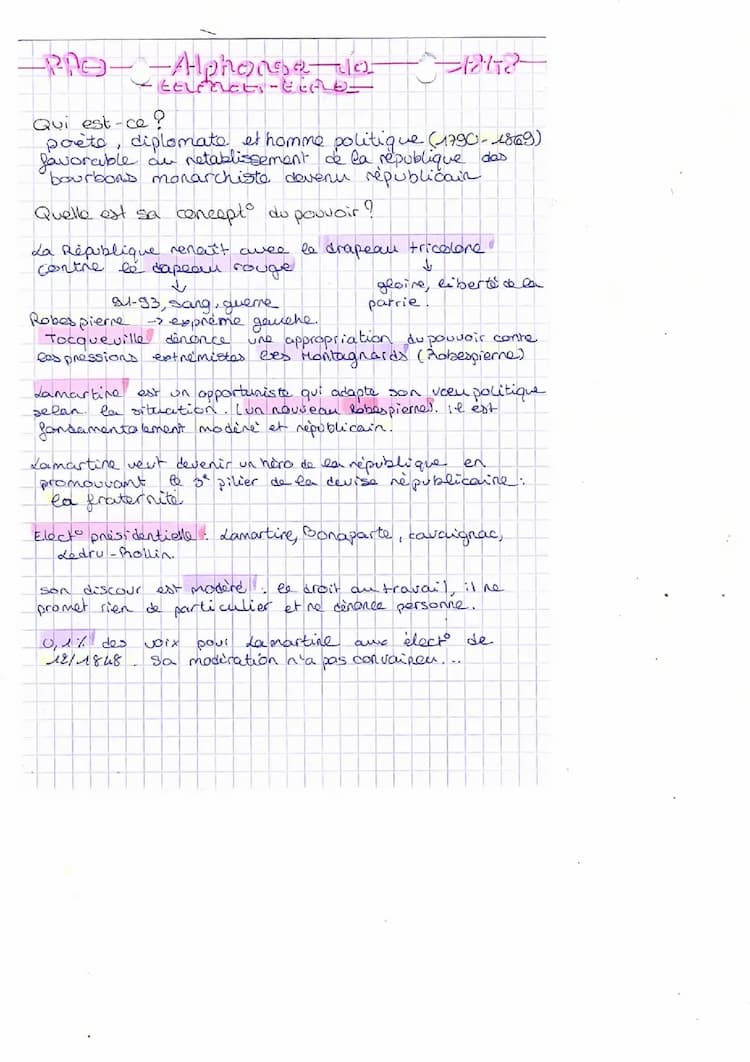 Alphonse de
Qui est-ce ?
poète, diplomate et homme politique (1790-1869)
favorable au retablissement de la république des
bourbons monarchiste devenu républicain
Quelle est sa concept° du pouvoir ?
La République renaît avec le drapeau tricolore
contre le dapeau rouge
gloire, liberté de la
patrie.
91-93, sang, guerre
Robespierre -> exprême gauche.
Tocqueville dénonce une appropriation du pouvoir contre
les pressions extrémistes les Montagnards (Robespierre)
Lamartine est un opportuniste qui adapte son voeu politique
selon la situation. (un nouveau Robespierre). il est
fondamentalement modéré et républicain.
Lamartine veut devenir un héro de la république en
promouvant le 3e pilier de la devise républicaine :
la fraternité
Elect° présidentielle : Lamartine, Bonaparte, cavaignac,
Ledru-Rollin.
son discour est modéré : le droit au travail, il ne
promet rien de particulier et ne dénonce personne.
0,1% des voix pour Lamartine aux élect° de
12/1848. Sa modération n'a pas convaincu...